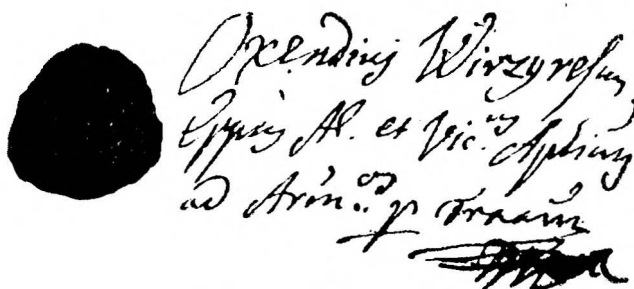 Oxendius Wirzyresus
Eppus Al. et Vic.us Aplicus
ad Armn.os p Traam